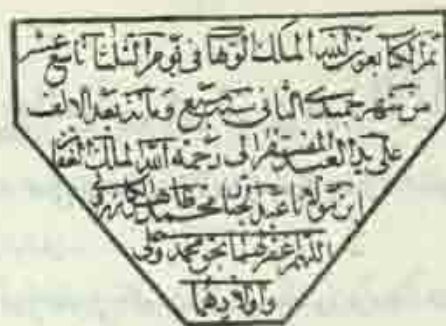 تم الكتاب بعون الله الملك الوهاب في يوم الثلثا تاسع عشر
من شهر جمیدی الثانی سنه سبع ومائة بعد الالف
على يد العبد المفتقر الى رحمة الله الملك الغفار
ابن مولانا عبد الجبار محمد طاهر
اللهم اغفر لهما بحق محمد وعلى
واولادهما